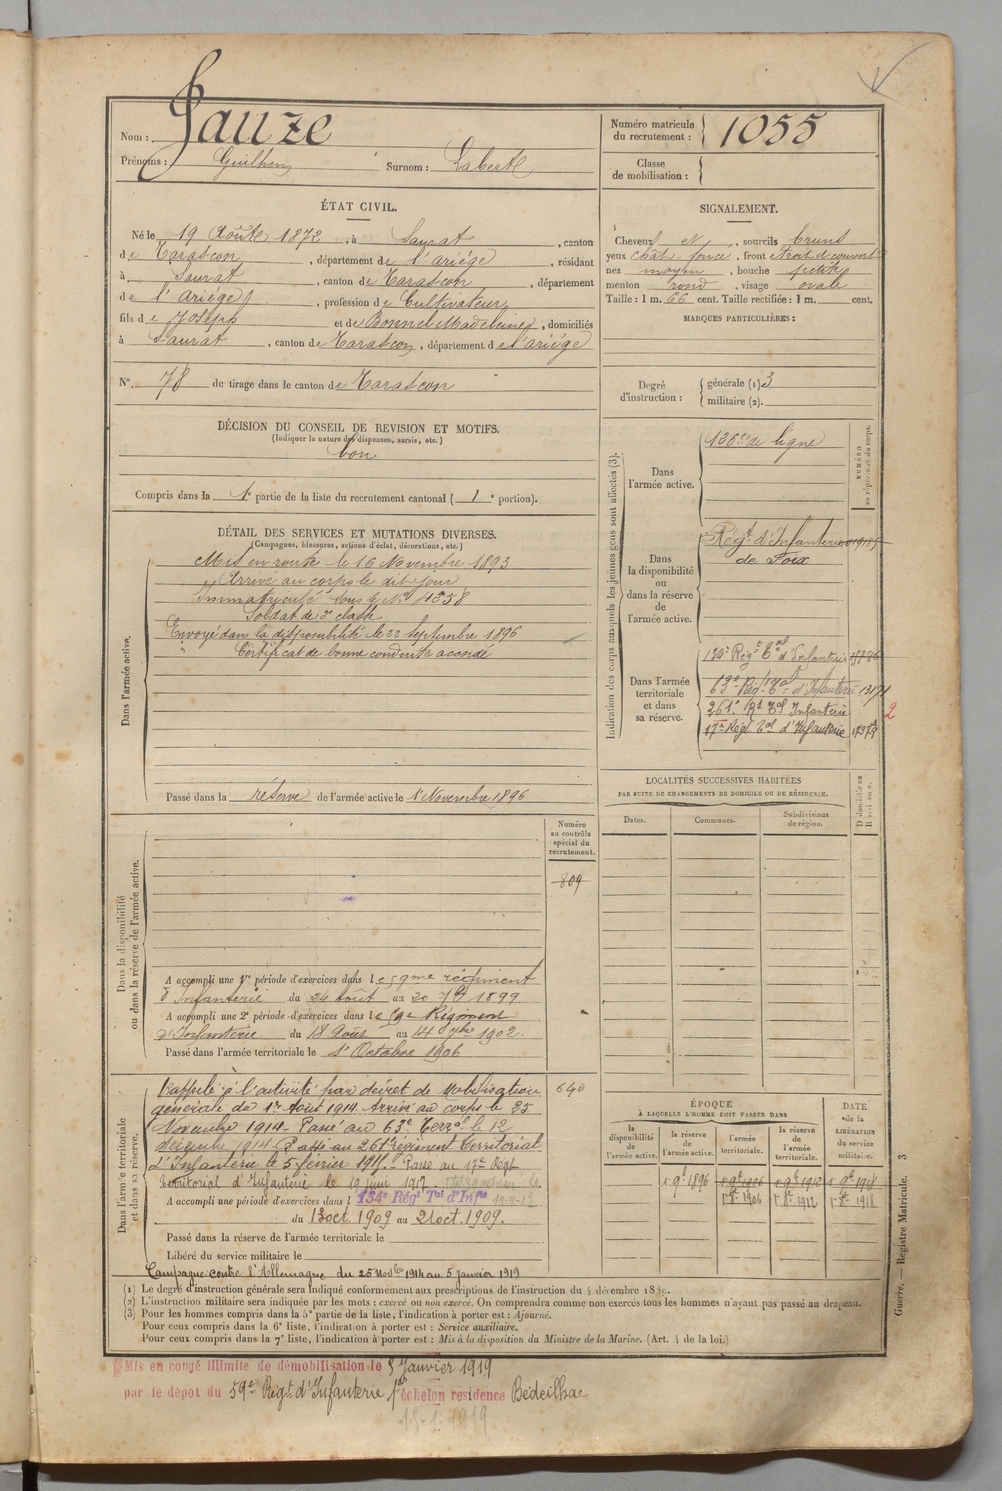 Nom : Jauze
Prénoms : Guilhem Surnom : Labert
Numéro matricule du recrutement : 1055
Classe de mobilisation :
ÉTAT CIVIL.
Né le 19 Août 1872, à Saurat, canton
de Tarascon, département de l'Ariége, résidant
à Saurat, canton de Tarascon, département
de l'Ariége, profession de Cultivateur,
fils de Joseph et de Bonnel Madeleine, domiciliés
à Saurat, canton de Tarascon, département de l'ariége
N° 78 de tirage dans le canton de Tarascon
SIGNALEMENT.
Cheveux et, sourcils bruns
yeux chât. foncé, front étroit découvert
nez moyen, bouche petite
menton rond, visage ovale
Taille : 1 m. 66 cent. Taille rectifiée : 1 m. cent.
MARQUES PARTICULIÈRES :
Degré d'instruction : générale (1) 3
militaire (2).
DÉCISION DU CONSEIL DE REVISION ET MOTIFS.
(Indiquer la nature des dispenses, sursis, etc.)
bon
Compris dans la 1e partie de la liste du recrutement cantonal ( 1e portion).
DÉTAIL DES SERVICES ET MUTATIONS DIVERSES.
(Campagnes, blessures, actions d'éclat, décorations, etc.)
Dans l'armée active.
Mis en route le 16 Novembre 1893
Arrivé au corps le dit jour
Immatriculé sous le No 4358
Soldat de 2e classe
Envoyé dans la disponibilité le 22 Septembre 1896
" Certificat de bonne conduite accordé
Passé dans la réserve de l'armée active le 1 Novembre 1896
Indication des corps auxquels les jeunes gens sont affectés (3).
NUMÉRO au répertoire du corps.
Dans l'armée active.
126e de ligne
Dans la disponibilité ou dans la réserve de l'armée active.
Régt d'Infanterie
de Foix
Dans l'armée territoriale et dans sa réserve.
134e Régt Tal d'Infanterie
63e Régt Tal d'Infanterie 13171
261e Rt Tal Infanterie
17e Régt Tal d'Infanterie
2
LOCALITÉS SUCCESSIVES HABITÉES
PAR SUITE DE CHANGEMENTS DE DOMICILE OU DE RÉSIDENCE.
Dates. Communes. Subdivisions de région. D domicile ou R résidence.
Dans la disponibilité ou dans la réserve de l'armée active.
Numéro au contrôle spécial du recrutement.
809
A accompli une 1re période d'exercices dans le 59me régiment
d'Infanterie du 24 août au 20 7bre 1899
A accompli une 2e période d'exercices dans le 59e Régiment
d'Infanterie du 18 Août au 14 7bre 1902.
Passé dans l'armée territoriale le 1er Octobre 1906
Dans l'armée territoriale et dans sa réserve.
640
Rappelé à l'activité par décret de mobilisation
générale du 1er Août 1914. Arrivé au corps le 25
Novembre 1914 - Passé au 63e Terral le 12
décembre 1914. Passé au 261e régiment territorial
d'Infanterie le 5 février 1915. Passé au 17e Régt
territorial d'Infanterie le 19 juin 1917
A accompli une période d'exercices dans l 134e Régt Tal d'Infie
du 13 oct. 1909 au 21 oct. 1909.
Passé dans la réserve de l'armée territoriale le
Libéré du service militaire le
Campagne contre l'Allemagne du 25 Novbre 1914 au 5 janvier 1919
ÉPOQUE
À LAQUELLE L'HOMME DOIT PASSER DANS
DATE de la LIBÉRATION du service militaire.
la disponibilité de l'armée active. la réserve de l'armée active. l'armée territoriale. la réserve de l'armée territoriale.
1 9bre 1896 1 9bre 1906 1 9bre 1912 1 9bre 1918
1er 8bre 1906 1er 8bre 1912 1er 8bre 1918
(1) Le degré d'instruction générale sera indiqué conformément aux prescriptions de l'instruction du 4 décembre 1889.
(2) L'instruction militaire sera indiquée par les mots : exercé ou non exercé. On comprendra comme non exercés tous les hommes n'ayant pas passé au drapeau.
(3) Pour les hommes compris dans la 5e partie de la liste, l'indication à porter est : Ajourné.
Pour ceux compris dans la 6e liste, l'indication à porter est : Service auxiliaire.
Pour ceux compris dans la 7e liste, l'indication à porter est : Mis à la disposition du Ministre de la Marine. (Art. 4 de la loi.)
Guerre. — Registre Matricule. 3
Mis en congé illimité de démobilisation le 5 Janvier 1919
par le dépôt du 59e Régt d'Infanterie 1er échelon résidence Bédeilhac
15-1-1919